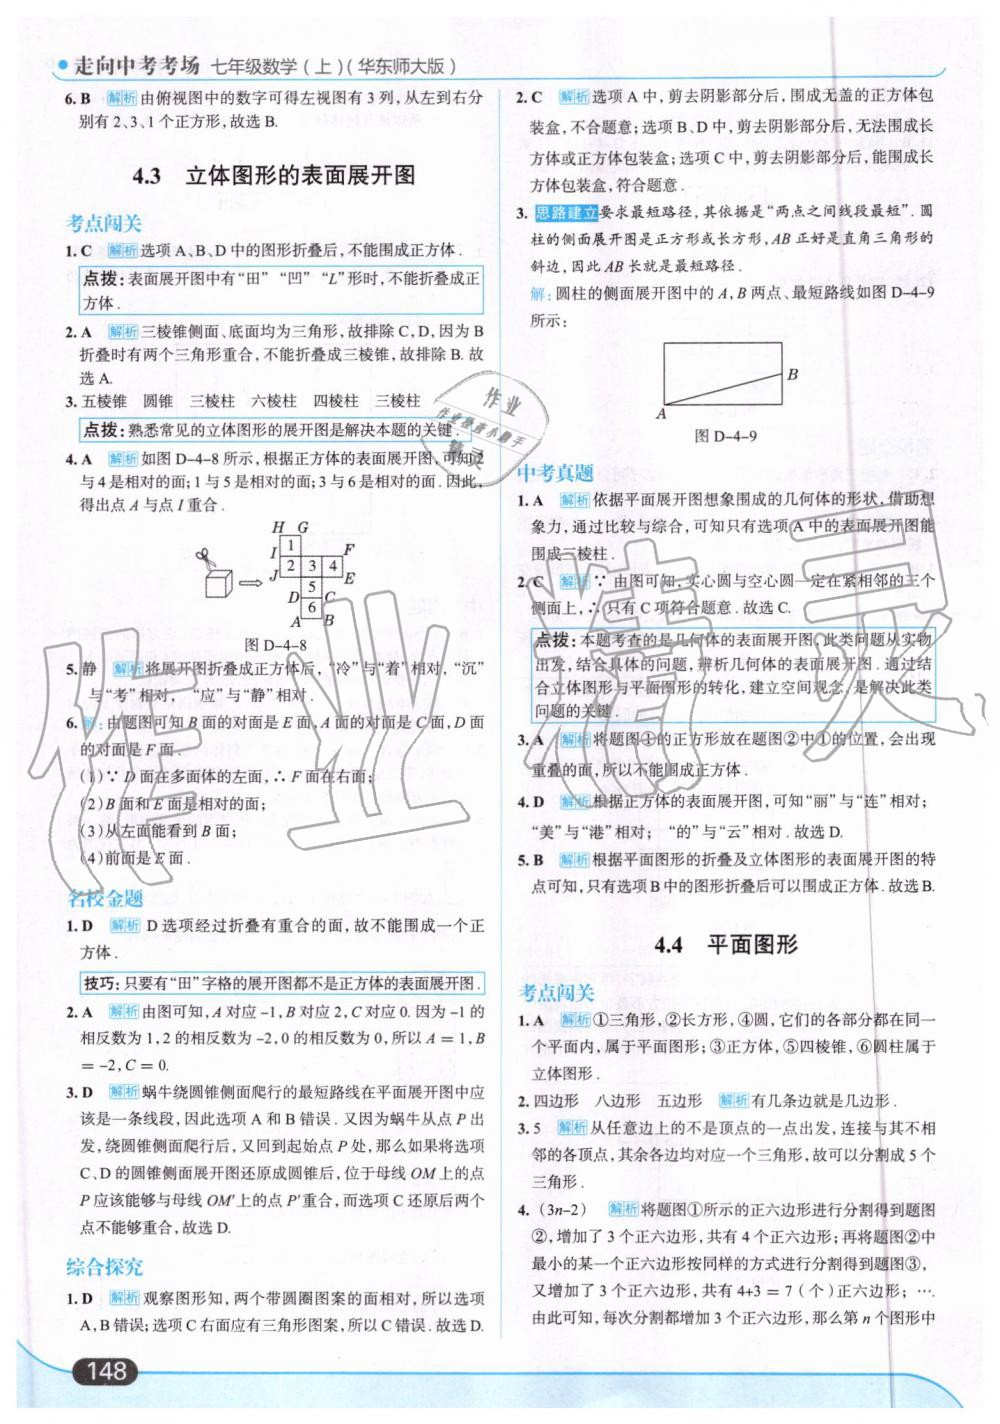 走向中考考场 七年级数学（上）（华东师大版）
6. B 解析 由俯视图中的数字可得左视图有3列，从左到右分
别有2、3、1个正方形，故选B.
4.3 立体图形的表面展开图
考点闯关
1. C 解析 选项A、B、D中的图形折叠后，不能围成正方体.
点拨：表面展开图中有“田” “凹” “L”形时，不能折叠成正
方体.
2. A 解析 三棱锥侧面、底面均为三角形，故排除C，D，因为B
折叠时有两个三角形重合，不能折叠成三棱锥，故排除B. 故
选A.
3. 五棱锥 圆锥 三棱柱 六棱柱 四棱柱 三棱柱
点拨：熟悉常见的立体图形的展开图是解决本题的关键.
4. A 解析 如图D-4-8所示，根据正方体的表面展开图，可知2
与4是相对的面；1与5是相对的面；3与6是相对的面. 因此，
得出点A与点I重合.
H G
I 1 F
2 3 4
J E
5
D C
6
A B
图D-4-8
5. 静 解析 将展开图折叠成正方体后，“冷”与“着”相对，“沉”
与“考”相对， “应”与“静”相对.
6. 解：由题图可知B面的对面是E面，A面的对面是C面，D面
的对面是F面.
(1)∵D面在多面体的左面，∴F面在右面；
(2)B面和E面是相对的面；
(3)从左面能看到B面；
(4)前面是E面.
名校金题
1. D 解析 D选项经过折叠有重合的面，故不能围成一个正
方体.
技巧：只要有“田”字格的展开图都不是正方体的表面展开图.
2. A 解析 由图可知，A对应-1，B对应2，C对应0. 因为-1的
相反数为1，2的相反数为-2，0的相反数为0，所以A=1，B
=-2，C=0.
3. D 解析 蜗牛绕圆锥侧面爬行的最短路线在平面展开图中应
该是一条线段，因此选项A和B错误. 又因为蜗牛从点P出
发，绕圆锥侧面爬行后，又回到起始点P处，那么如果将选项
C、D的圆锥侧面展开图还原成圆锥后，位于母线OM上的点
P应该能够与母线OM′上的点P′重合，而选项C还原后两个
点不能够重合，故选D.
综合探究
1. D 解析 观察图形知，两个带圆圈图案的面相对，所以选项
A，B错误；选项C右面应有三角形图案，所以C错误. 故选D.
148
2. C 解析 选项A中，剪去阴影部分后，围成无盖的正方体包
装盒，不合题意；选项B、D中，剪去阴影部分后，无法围成长
方体或正方体包装盒；选项C中，剪去阴影部分后，能围成长
方体包装盒，符合题意.
3. 思路建立 要求最短路径，其依据是“两点之间线段最短”. 圆
柱的侧面展开图是正方形或长方形，AB正好是直角三角形的
斜边，因此AB长就是最短路径.
解：圆柱的侧面展开图中的A，B两点、最短路线如图D-4-9
所示：
B
A
图D-4-9
中考真题
1. A 解析 依据平面展开图想象围成的几何体的形状，借助想
象力，通过比较与综合，可知只有选项A中的表面展开图能
围成三棱柱.
2. C 解析 ∵由图可知，实心圆与空心圆一定在紧相邻的三个
侧面上，∴只有C项符合题意. 故选C.
点拨：本题考查的是几何体的表面展开图，此类问题从实物
出发，结合具体的问题，辨析几何体的表面展开图. 通过结
合立体图形与平面图形的转化，建立空间观念，是解决此类
问题的关键.
3. A 解析 将题图①的正方形放在题图②中①的位置，会出现
重叠的面，所以不能围成正方体.
4. D 解析 根据正方体的表面展开图，可知“丽”与“连”相对；
“美”与“港”相对； “的”与“云”相对. 故选D.
5. B 解析 根据平面图形的折叠及立体图形的表面展开图的特
点可知，只有选项B中的图形折叠后可以围成正方体. 故选B.
4.4 平面图形
考点闯关
1. A 解析 ①三角形，②长方形，④圆，它们的各部分都在同一
个平面内，属于平面图形；③正方体，⑤四棱锥，⑥圆柱属于
立体图形.
2. 四边形 八边形 五边形 解析 有几条边就是几边形.
3. 5 解析 从任意边上的不是顶点的一点出发，连接与其不相
邻的各顶点，其余各边均对应一个三角形，故可以分割成5个
三角形.
4. （3n-2） 解析 将题图①所示的正六边形进行分割得到题图
②，增加了3个正六边形，共有4个正六边形；再将题图②中
最小的某一个正六边形按同样的方式进行分割得到题图③，
又增加了3个正六边形，共有4+3=7（个）正六边形；….
由此可知，每次分割都增加3个正六边形，那么第n个图形中
作业精灵
作业
作业检查小助手
精灵